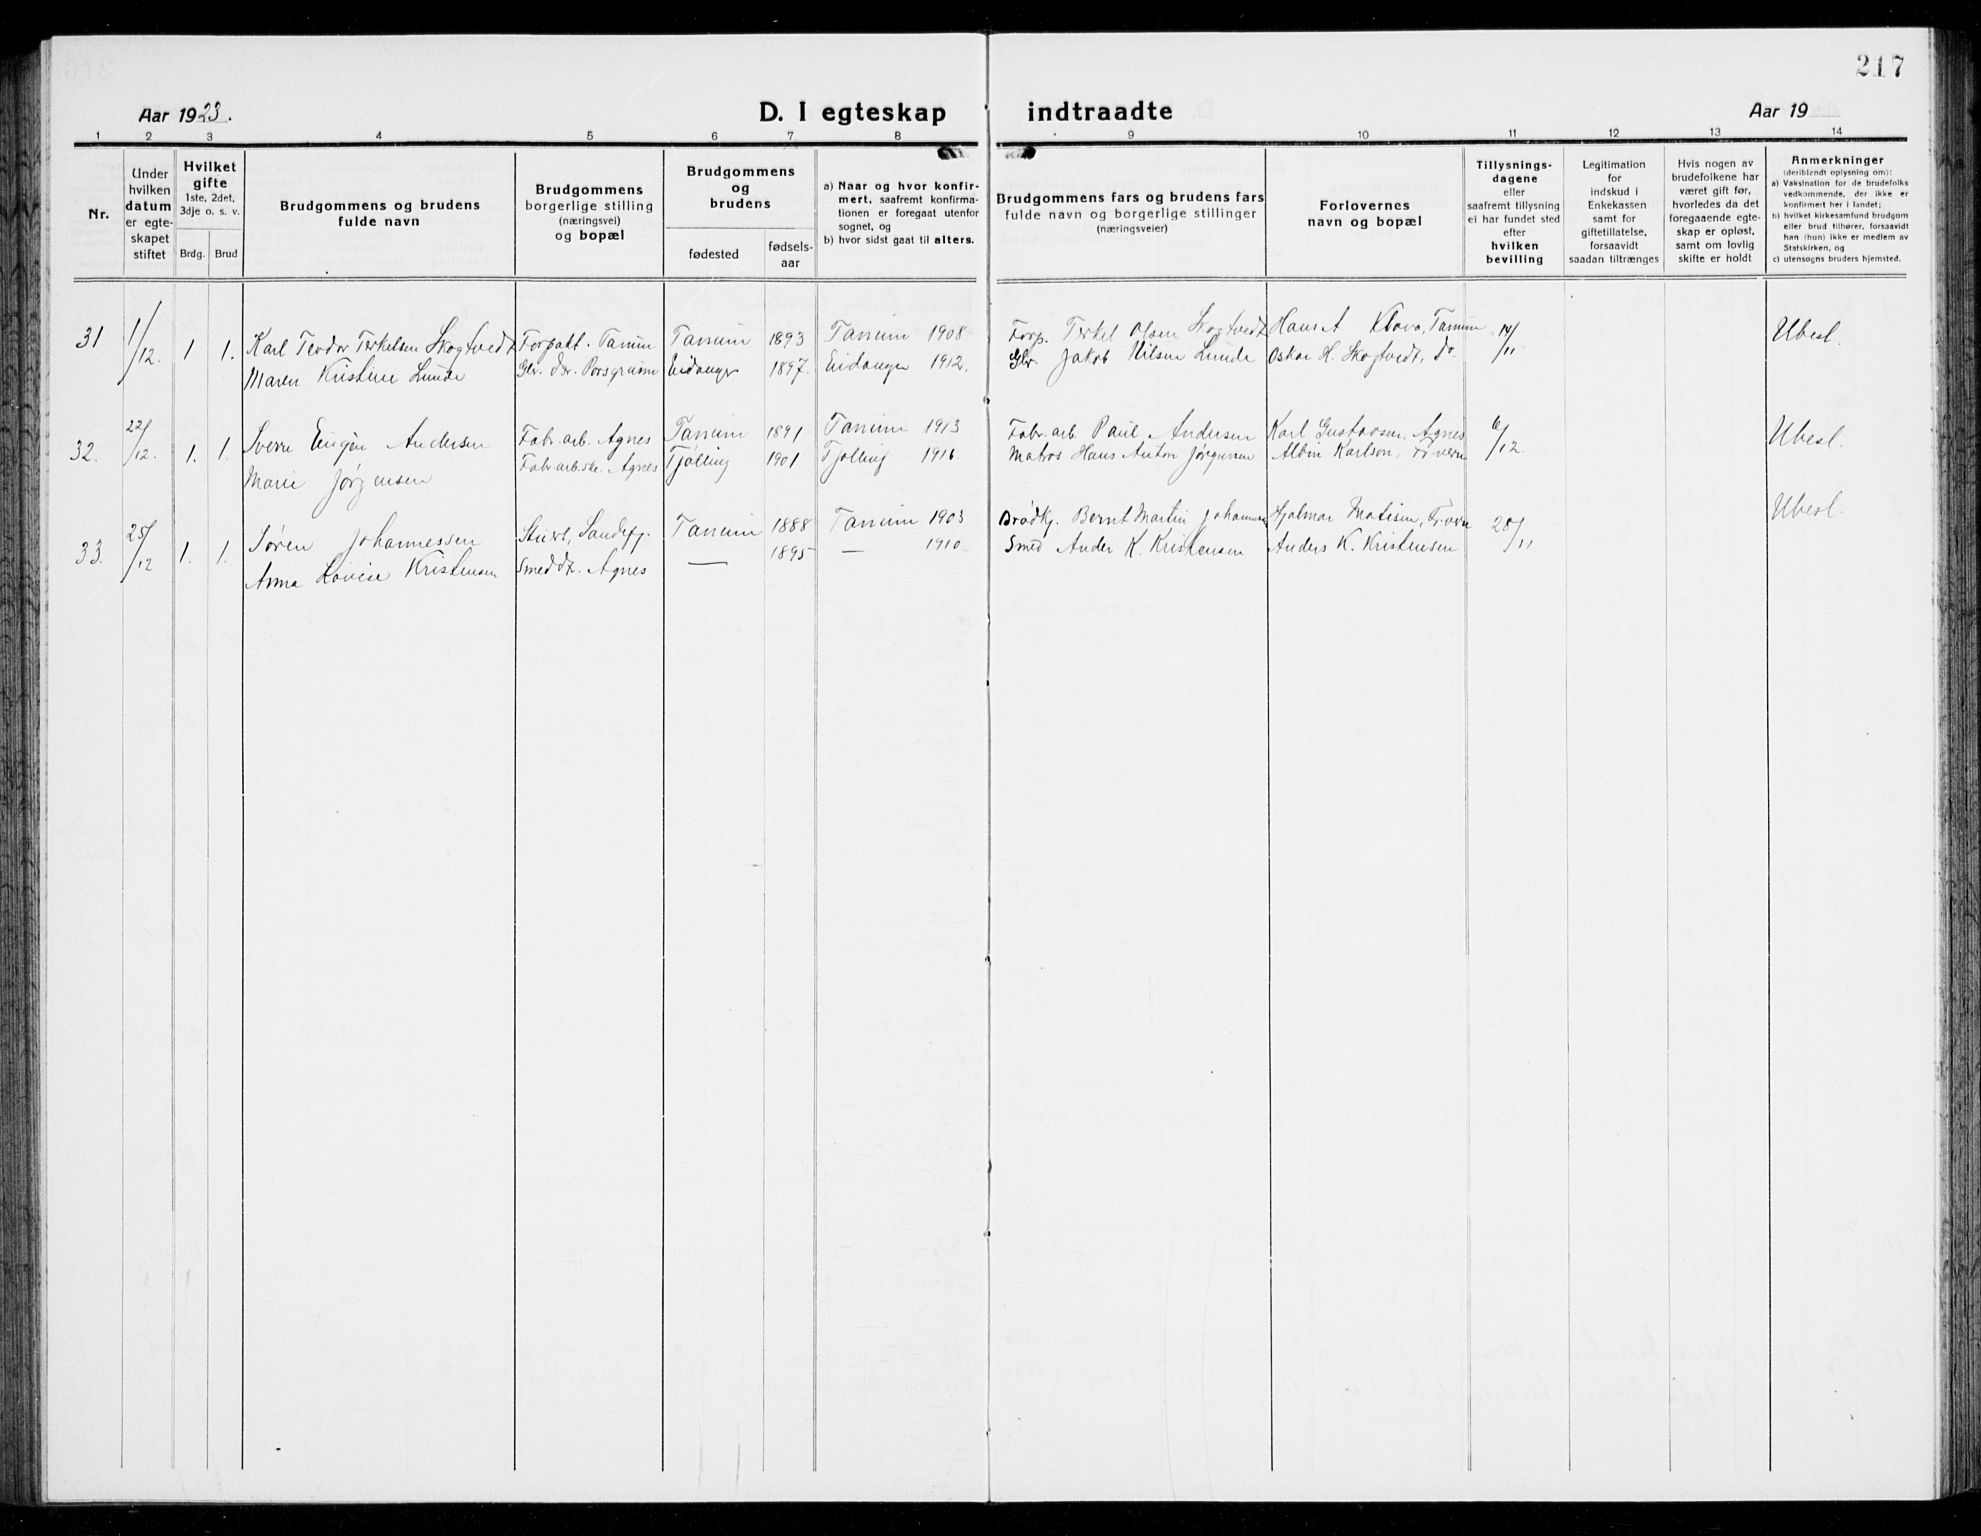 217
Aar 1923.
D. I egteskap indtraadte
Aar 19
1 2 3 4 5 6 7 8 9 10 11 12 13 14
Nr.
Under
hvilken
datum
er egte-
skapet
stiftet
Hvilket
gifte
1ste, 2det,
3dje o. s. v.
Brdg. Brud
Brudgommens og brudens
fulde navn
Brudgommens
borgerlige stilling
(næringsvei)
og bopæl
Brudgommens
og
brudens
fødested
fødsels-
aar
a) Naar og hvor konfir-
mert, saafremt konfirma-
tionen er foregaat utenfor
sognet, og
b) hvor sidst gaat til alters.
Brudgommens fars og brudens fars
fulde navn og borgerlige stillinger
(næringsveier)
Forlovernes
navn og bopæl
Tillysnings-
dagene
eller
saafremt tillysning
ei har fundet sted
efter
hvilken
bevilling
Legitimation
for
indskud i
Enkekassen
samt for
giftetillatelse,
forsaavidt
saadan tiltrænges
Hvis nogen av
brudefolkene har
været gift før,
hvorledes da det
foregaaende egte-
skap er opløst,
samt om lovlig
skifte er holdt
Anmerkninger
(deriblendt oplysning om):
a) Vaksination for de brudefolks
vedkommende, der ikke er
konfirmert her i landet;
b) hvilket kirkesamfund brudgom
eller brud tilhører, forsaavidt
han (hun) ikke er medlem av
Statskirken, og
c) utensogns bruders hjemsted.
31 1/12. 1 1. Karl Teodor Terkelsen Skogtvedt Forpakt. Tanum Tanum 1893 Tanum 1908 Forp. Terkel Olsen Skogtvedt Hans A Klova, Tanum 14/11 Ubesl.
Maren Kristine Lunde Gbr. dtr. Porsgrunn Eidanger 1897. Eidanger 1912. Gbr. Jakob Nilsen Lunde Oskar H. Skogtvedt, do
32. 22/12. 1. 1. Sverre Eugen Andersen Fabr.arb. Agnes Tanum 1891 Tanum 1913 Fabr.arb. Paul Andersen Karl Gustavsen, Agnes 6/12. Ubesl.
Marie Jørgensen Fabr.arb.ske. Agnes Tjølling 1901 Tjølling 1916 Matros Hans Anton Jørgensen Albin Karlson,
33. 25/12 1. 1. Søren Johannessen Stuert, Sandefj. Tanum 1888 Tanum 1903 Brødkj. Bernt Martin Johannesen Hjalmar Matisen, 28/11 Ubesl.
Anna Lovise Kristensen Smed dtr. Agnes — 1895 — 1910 Smed Anders K. Kristensen Anders K. Kristensen